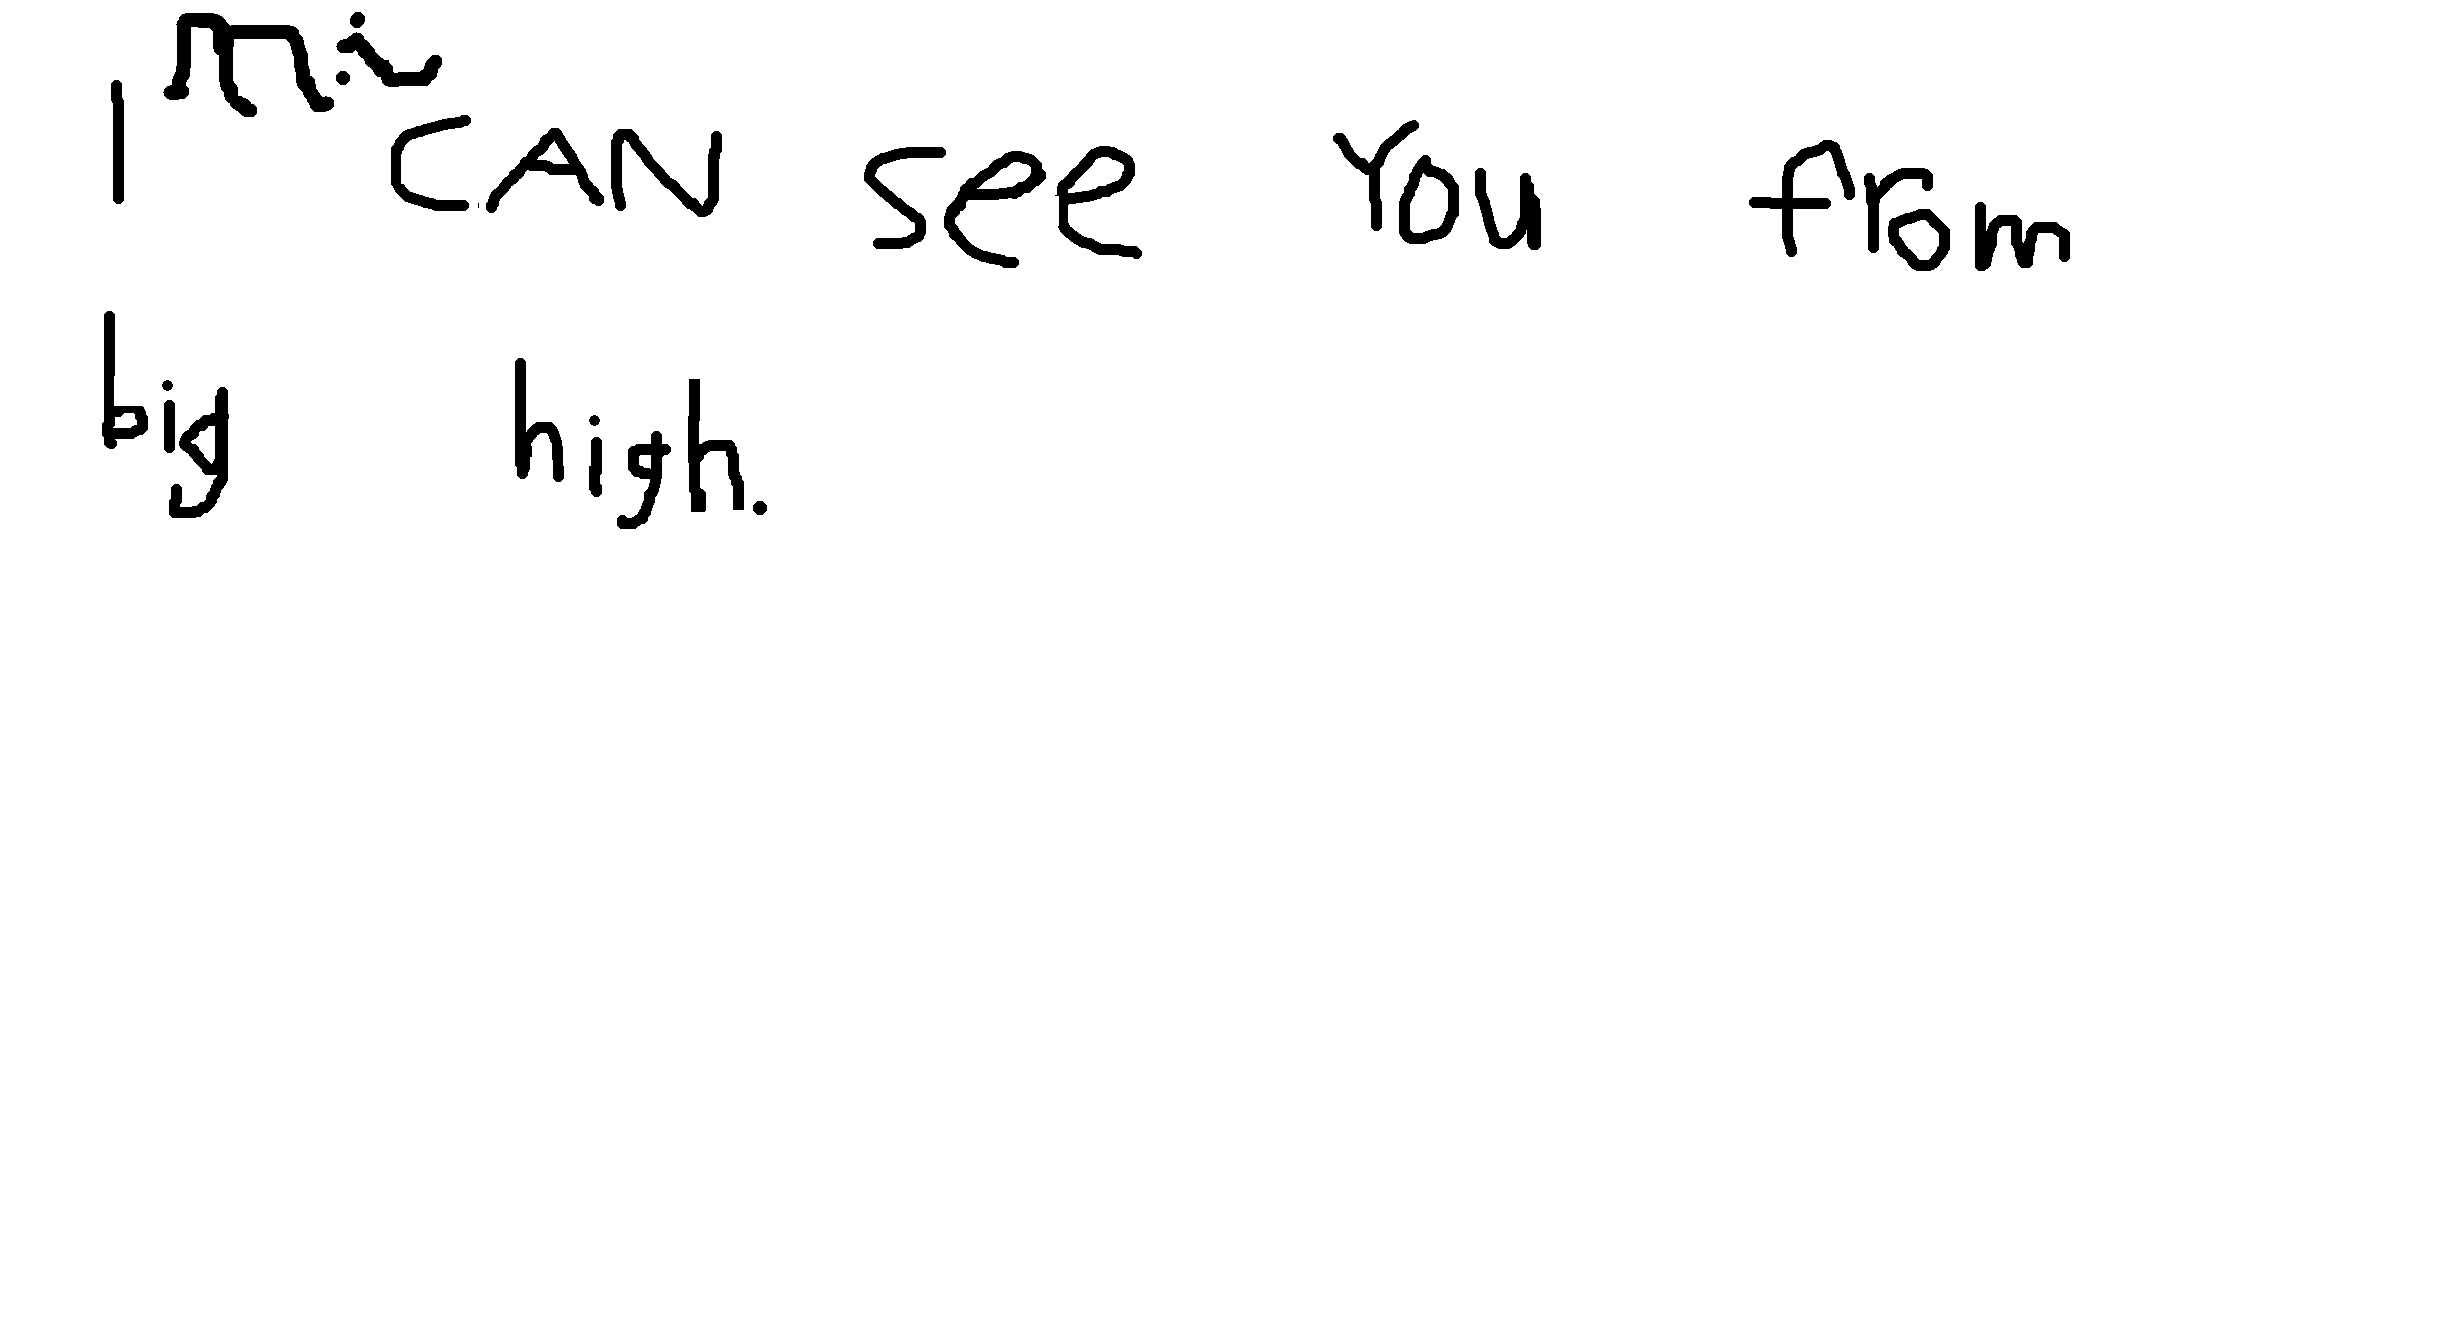 I CAN see You from
big high.